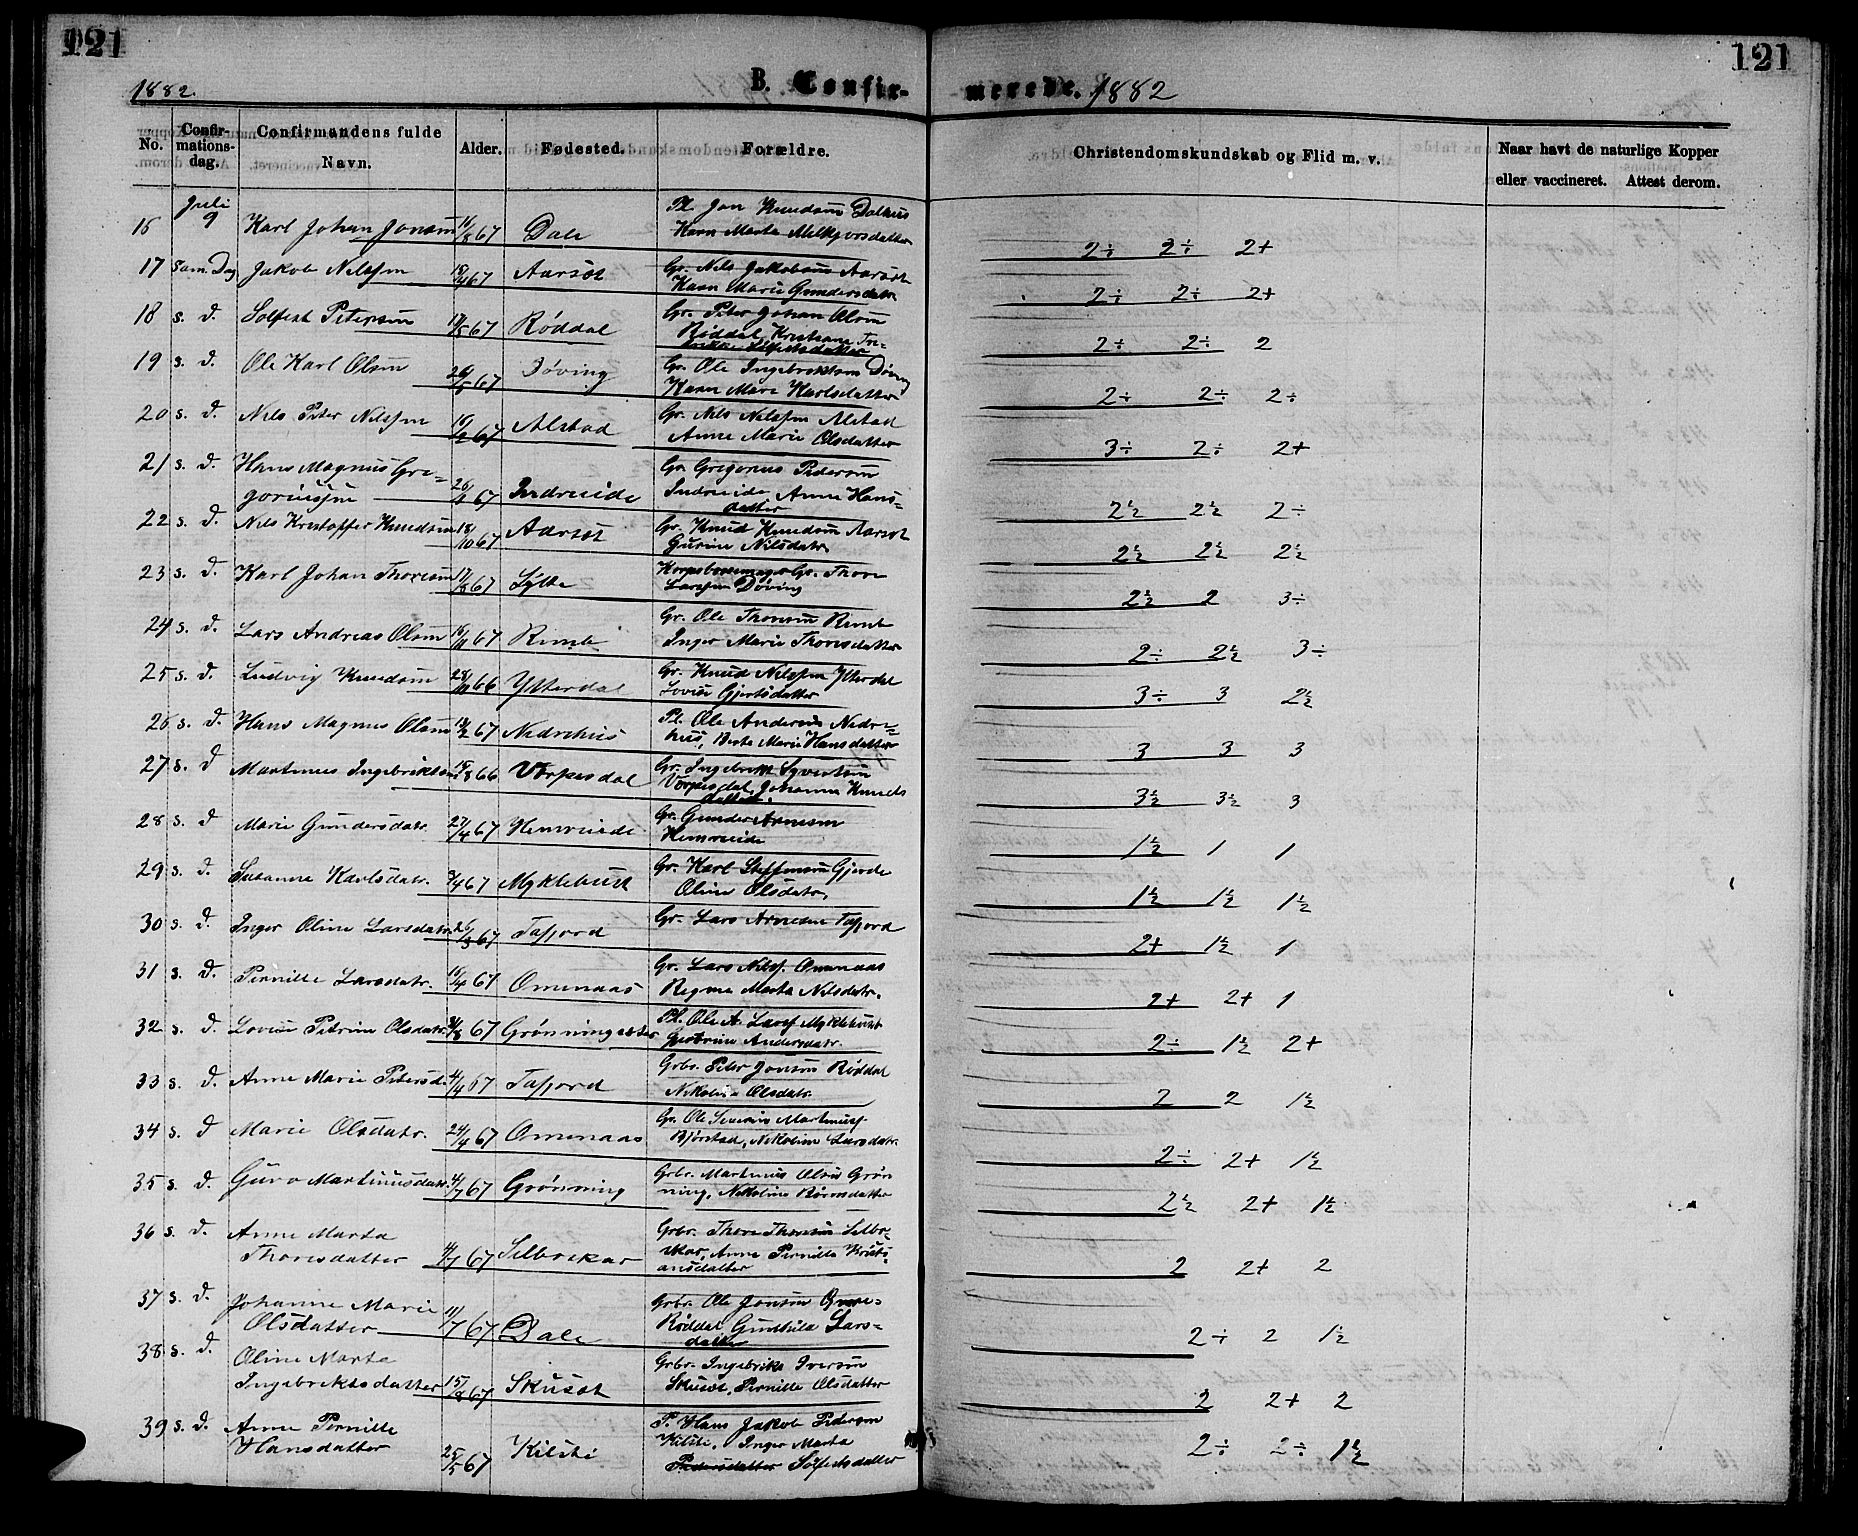 121
121
1882.
B. Confir-
merede. 1882
No.
Confir-
mations-
dag.
Confirmandens fulde
Navn.
Alder.
Fødested.
Forældre.
Christendomskundskab og Flid m. v.
Naar havt de naturlige Kopper
eller vaccineret. Attest derom.
Juli
9
16 Karl Johan Jonsøn 67 Dale
Pl. Jon Knudsøn Dalhus
Karn Marta
2÷ 2÷ 2+
17 Sam. Dag Jakob Nilssøn 67 Aarsøt
Gr. Nils Jakobsøn Aarsøt
Karn Marie Gundersdatr.
2÷ 2÷ 2+
18 s. d. Solfest Petersøn 67 Røddal
Gr. Peter Johan Olsøn
Røddal, Kristiane
Solfestsdatter
2÷ 2÷ 2
19 s. d. Ole Karl Olsøn 67 Døving
Gr. Ole Ingebriktsøn Døving
Karn Mari Karlsdatter
2÷ 2÷ 2÷
20 s. d. Nils Peter Nilssøn 67 Alstad
Gr. Nils Nilssøn Alstad
Anne Marie Olsdatter
3÷ 2÷ 2+
21 s. d. Hans Magnus Gre=
goriussøn 26/ 67 Indreeide
Gr. Gregorius Pedersøn
Indreeide, Anne Hans=
datter
2½ 2½ 2÷
22 s. d. Nils Kristoffer Knudsøn 18/10 67 Aarsøt
Gr. Knud Knudsøn Aarsøt
Gurine Nilsdatr.
2½ 2½ 2½
23 s. d. Karl Johan Thoresøn 67 Sylte
Gr. Thore
Larssøn Døving
2½ 2 3÷
24 s. d. Lars Andreas Olsøn 67 Remb
Gr. Ole Thoresøn Remb
Inger Marie Thoresdatter
2÷ 2½ 3÷
25 s. d. Ludvig Knudsøn 66 Ytterdal
Gr. Knud Nilssøn Ytterdal
Lovise Gjertsdatter
3÷ 3 2½
26 s. d. Hans Magnus Olsøn 67 Nedrehus
Pl. Ole Andersøn Nedre=
hus, Berte Marie Hansdatter
3 3 3
27 s. d Martinus Ingebriktsøn 66 Vorpesdal
Gr. Ingebrikt Syvertsøn
Vorpesdal, Johanna Knuds
datter.
3½ 3½ 3
28 s. d Marie Gundersdatr. 27/4 67 Heiereide
Gr. Gunder Arnesøn
Heiereide
1½ 1 1
29 s. d. Susanne Karlsdatr. 67 Myklebust
Gr. Karl Steffensøn Gjerde
Oline Olsdatr.
1½ 1½ 1½
30 s. d. Inger Oline Larsdatr. 67 Tafjord
Gr. Lars Arnesen Tafjord
2+ 1½ 1
31 s. d. Pernille Larsdatr. 16/4 67 Omenaas
Gr. Lars Nilsf. Omenaas
Regine Marta Nilsdatr.
2+ 2+ 1
32 s. d. Lovise Petrine Olsdatr. 67 Grønningsæter
Pl. Ole A. Larsf Myklebust
Gertrine Andersdatr.
2÷ 1½ 2+
33 s. d. Anne Marie Petersd. 67 Tafjord
Grbr. Peter Jonsøn Røddal
Nikoline Olsdatr.
2 2 1½
34 s. d Marie Olsdatr. 24/4 67 Omenaas
Gr. Ole Severin Martinusf.
Bjørstad, Nikoline Larsdatr.
2÷ 2+ 1½
35 s. d. Guro Martinusdatr. 4/7 67 Grønning
Grbr. Martinus Olsøn Grøn
ning, Nikoline Bårnsdatter
2½ 2+ 1½
36 s. d. Anne Marta
Thoresdatter 67 Selboskar
Grbr. Thore Thoresøn Selbo=
skar, Anne Pernille Kristi=
ansdatter
2 2+ 2
37 s. d. Johanne Marie
Olsdatter 11/7 67 Dale
Grbr. Ole Jonsøn Øvre=
Røddal Gunhild Lars=
datter
2÷ 2 1½
38 s. d. Oline Marta
Ingebriktsdatter 67 Skusøt
Grbr. Ingebrikt Iversøn
Skusøt, Pernille Olsdatter
2 2+ 2
39 s. d. Anne Pernille
Hansdatter 25/5 67 Kilsti
P. Hans Jakob Pedersøn
Kilsti, Inger Marta
Pedersdatter Solfestsdatter
2÷ 2÷ 1½